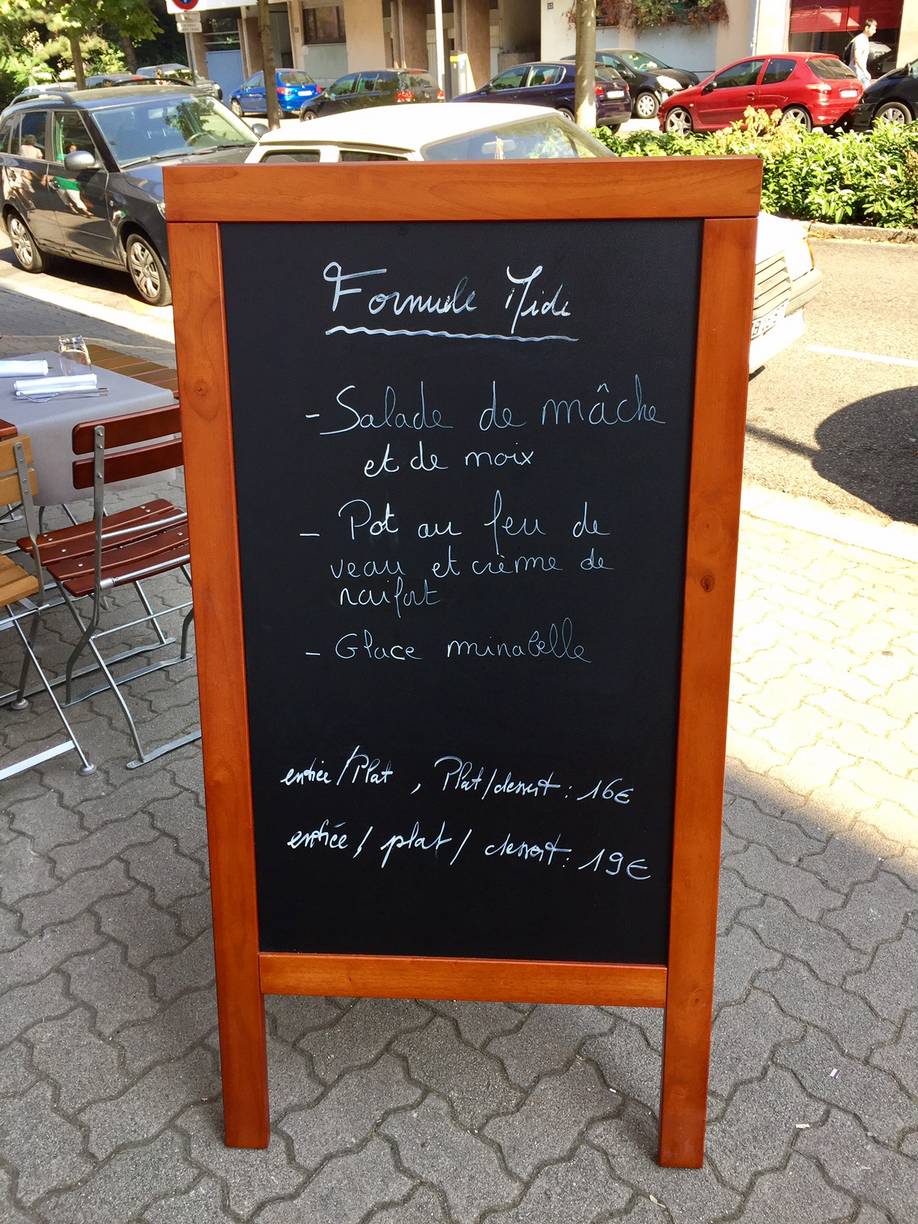 Formule Midi
- Salade de mâche
et de noix
- Pot au feu de
veau et crème de
raifort
- Glace mirabelle
entrée/Plat, Plat/dessert : 16€
entrée/ plat/ dessert : 19€